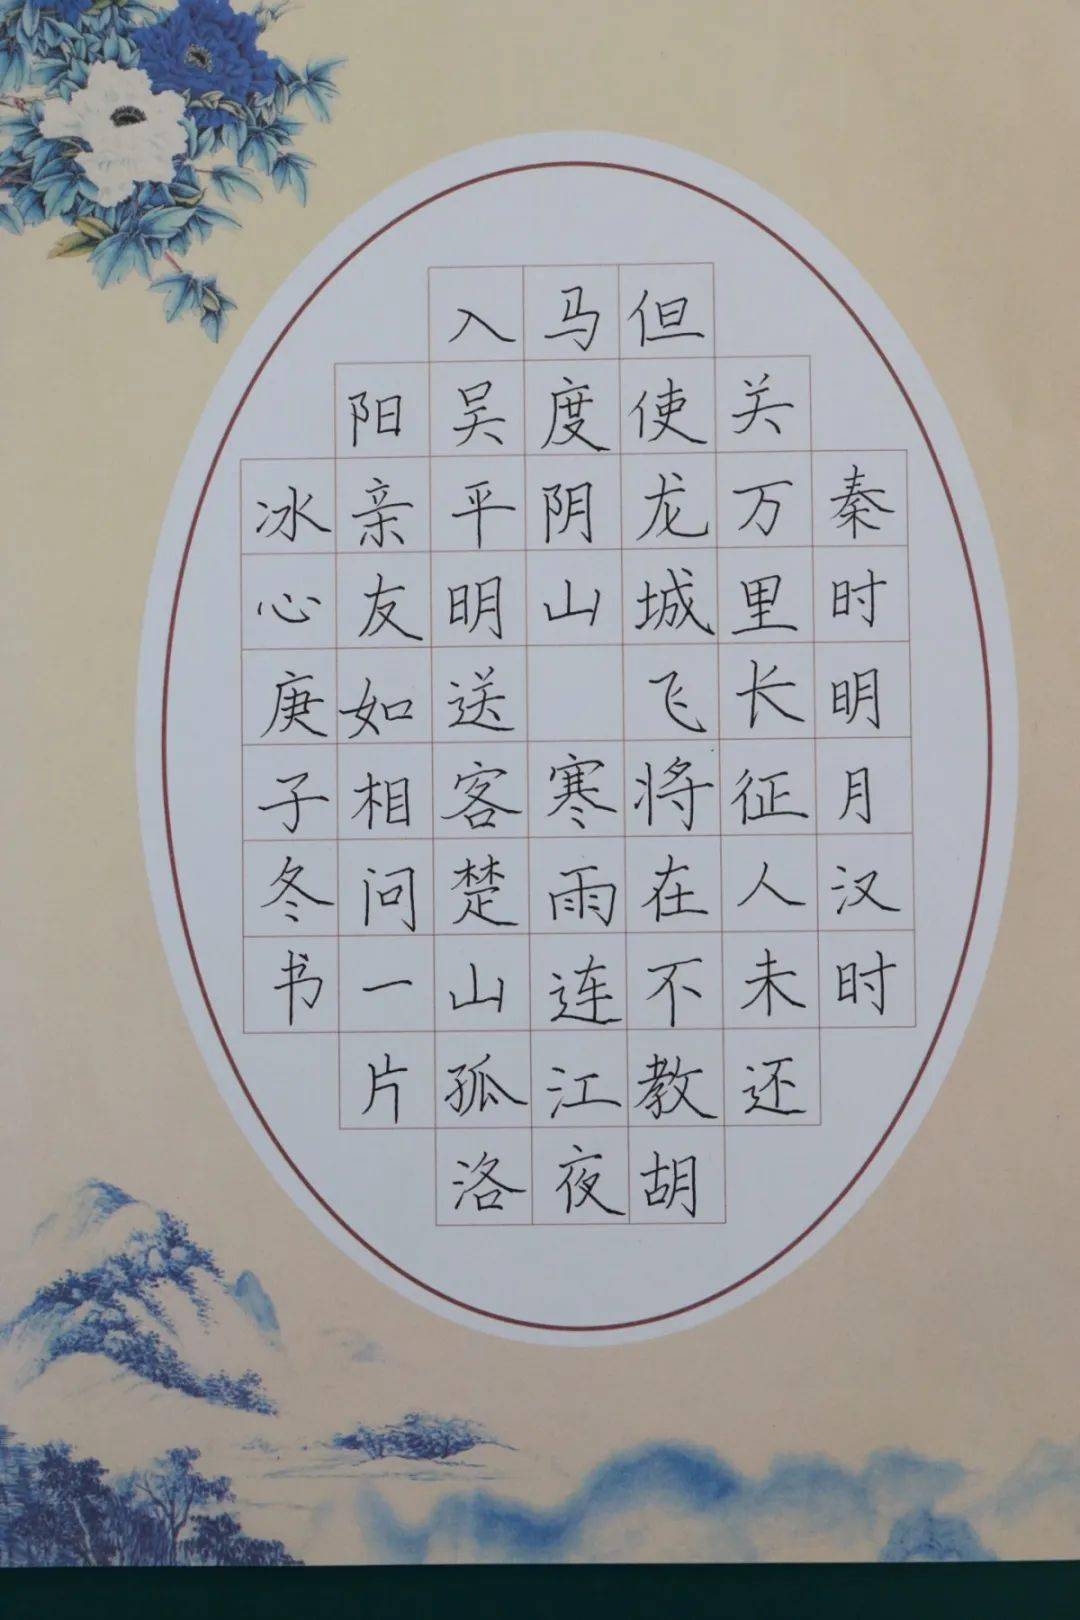 秦时明月汉时
关万里长征人未还
但使龙城飞将在不教胡
马度阴山 寒雨连江夜
入吴平明送客楚山孤洛
阳亲友如相问一片
冰心庚子冬书